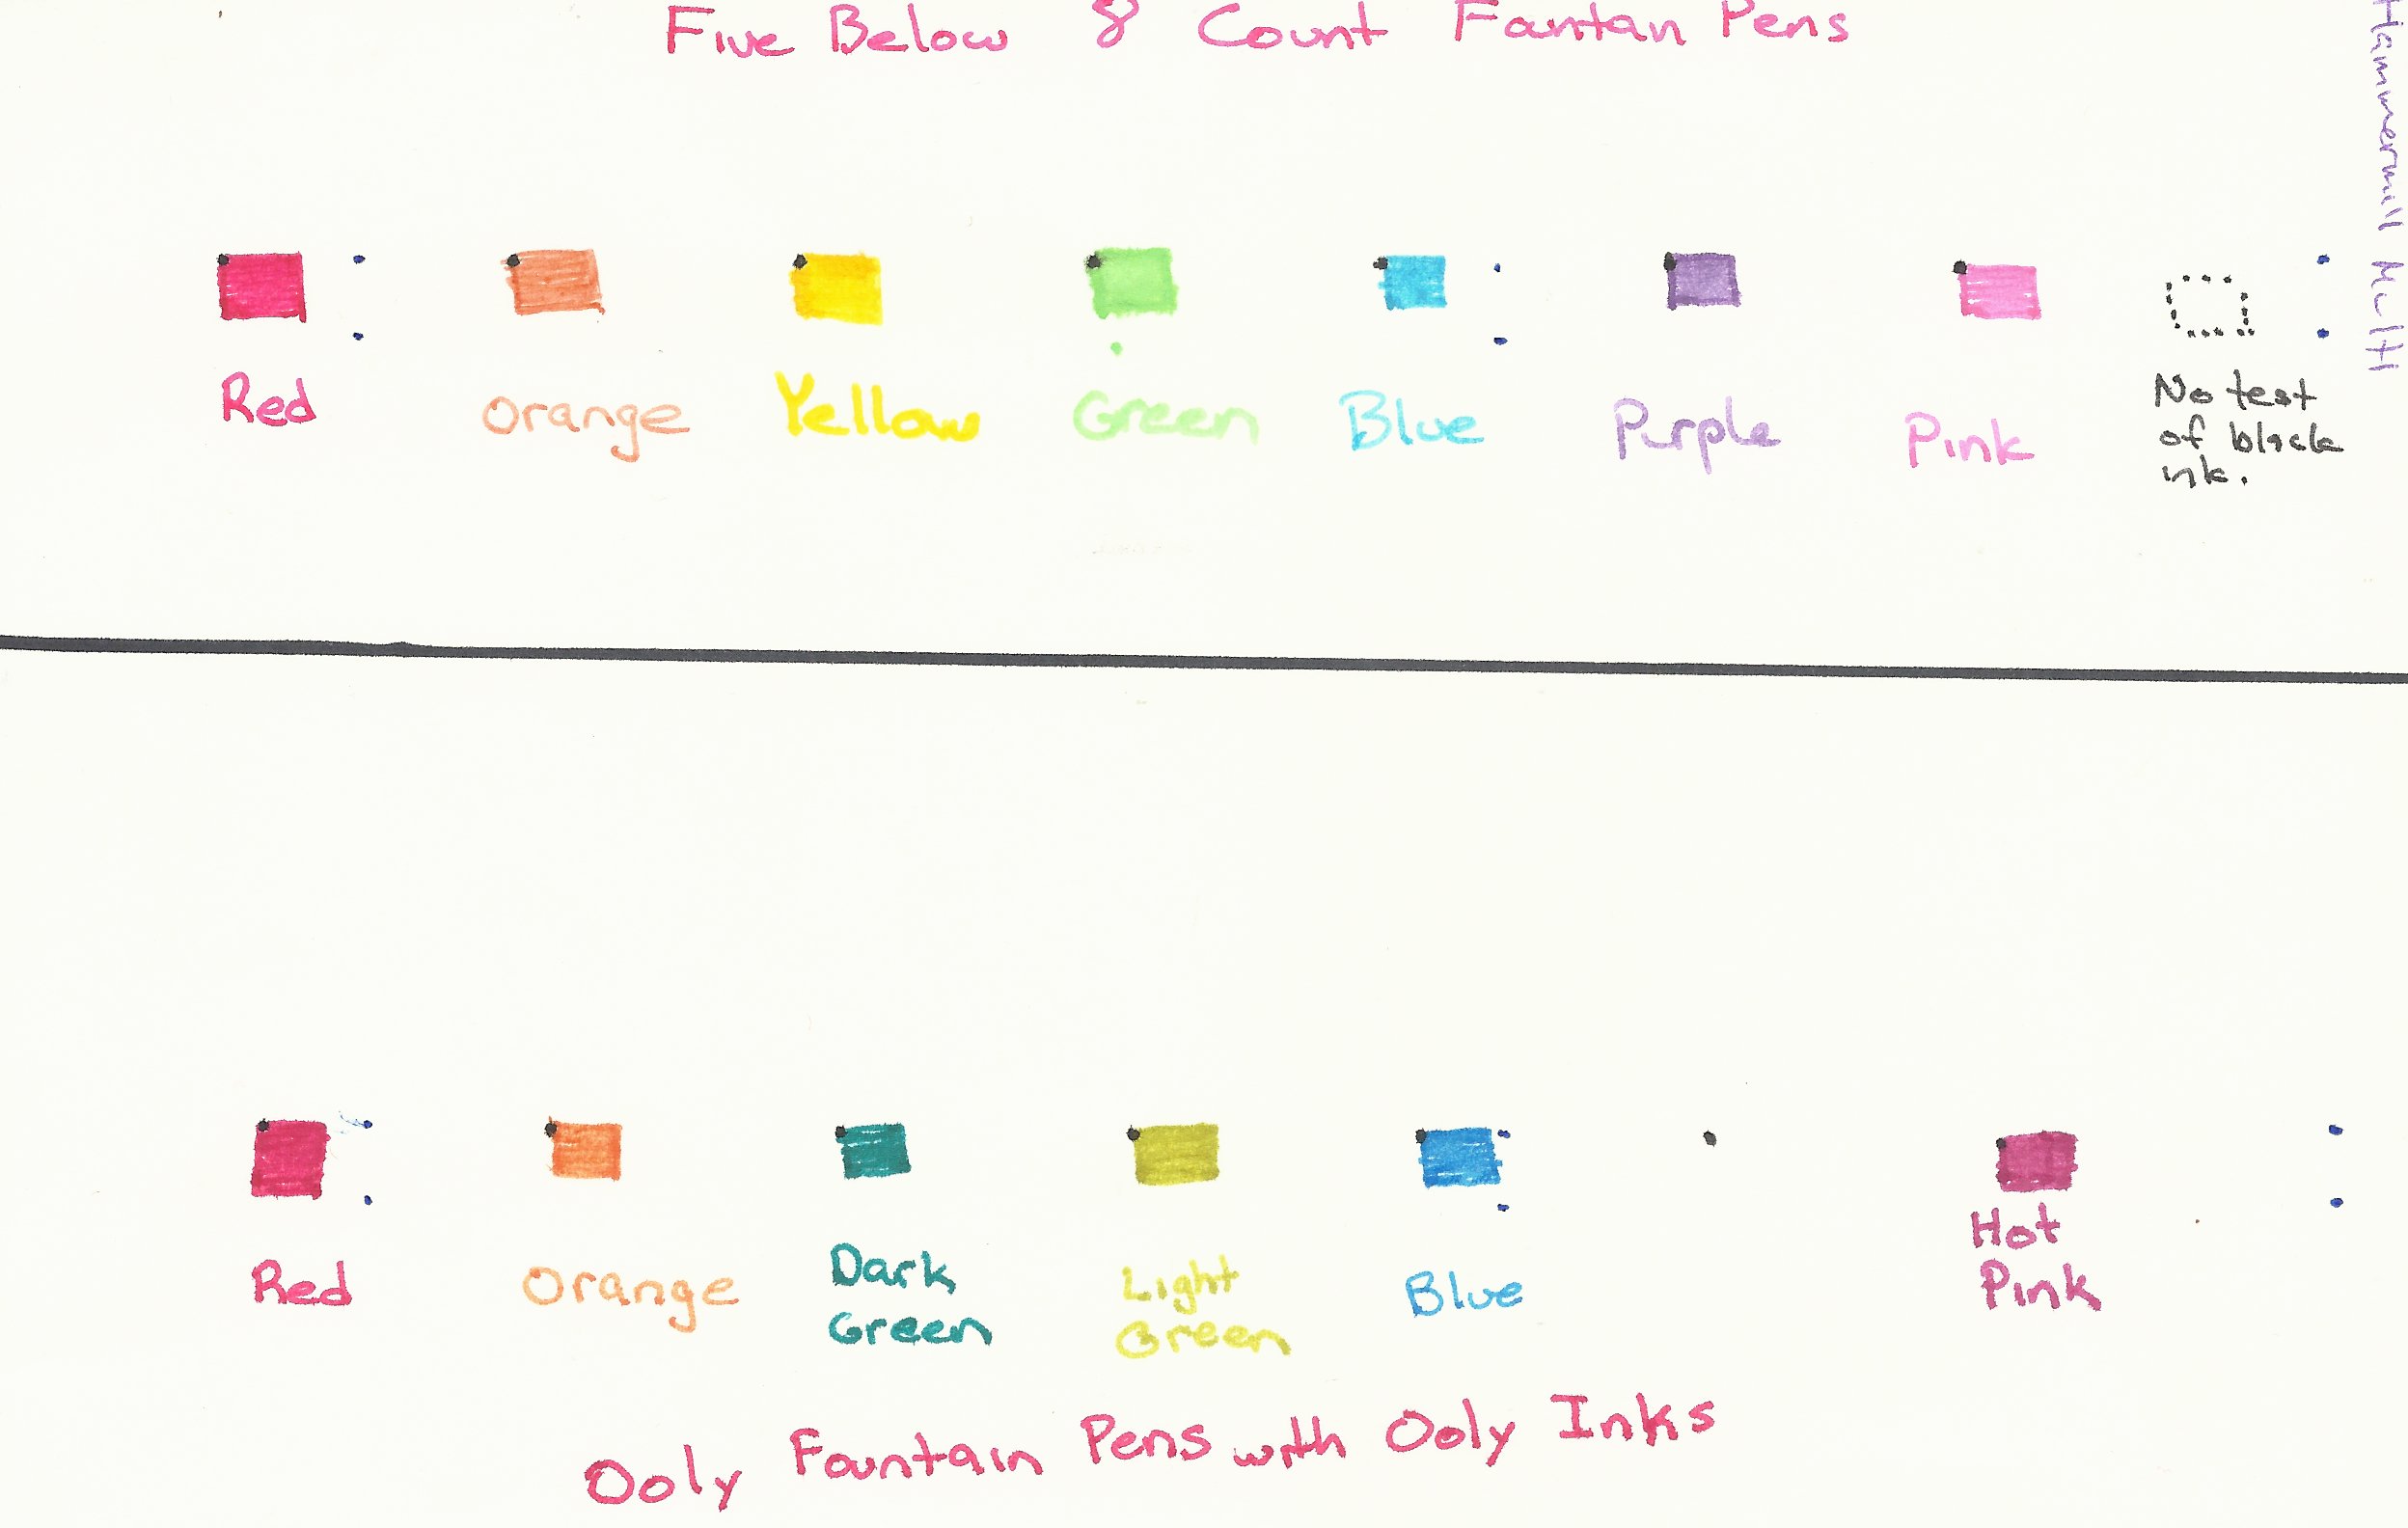 Five Below 8 Count Fountan Pens
Hammermill
Red
Orange
Yellow
Green
Blue
Purple
Pink
No test
of black
ink.
Red
Orange
Dark
Green
Light
Green
Blue
Hot
Pink
Ooly Fountain Pens with Ooly Inks